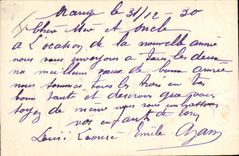 le 31/12-20
Cher Mère et oncle
a L'ocasion de la nouvelle année
nous vous envoyons a tous les deux
no meilleur veux de bonne année
nous sommes tous les trois en
bonne santé et desirons que vous
soyez de meme nous vous embrassons
vos enfants de
Louis Leonie Emile